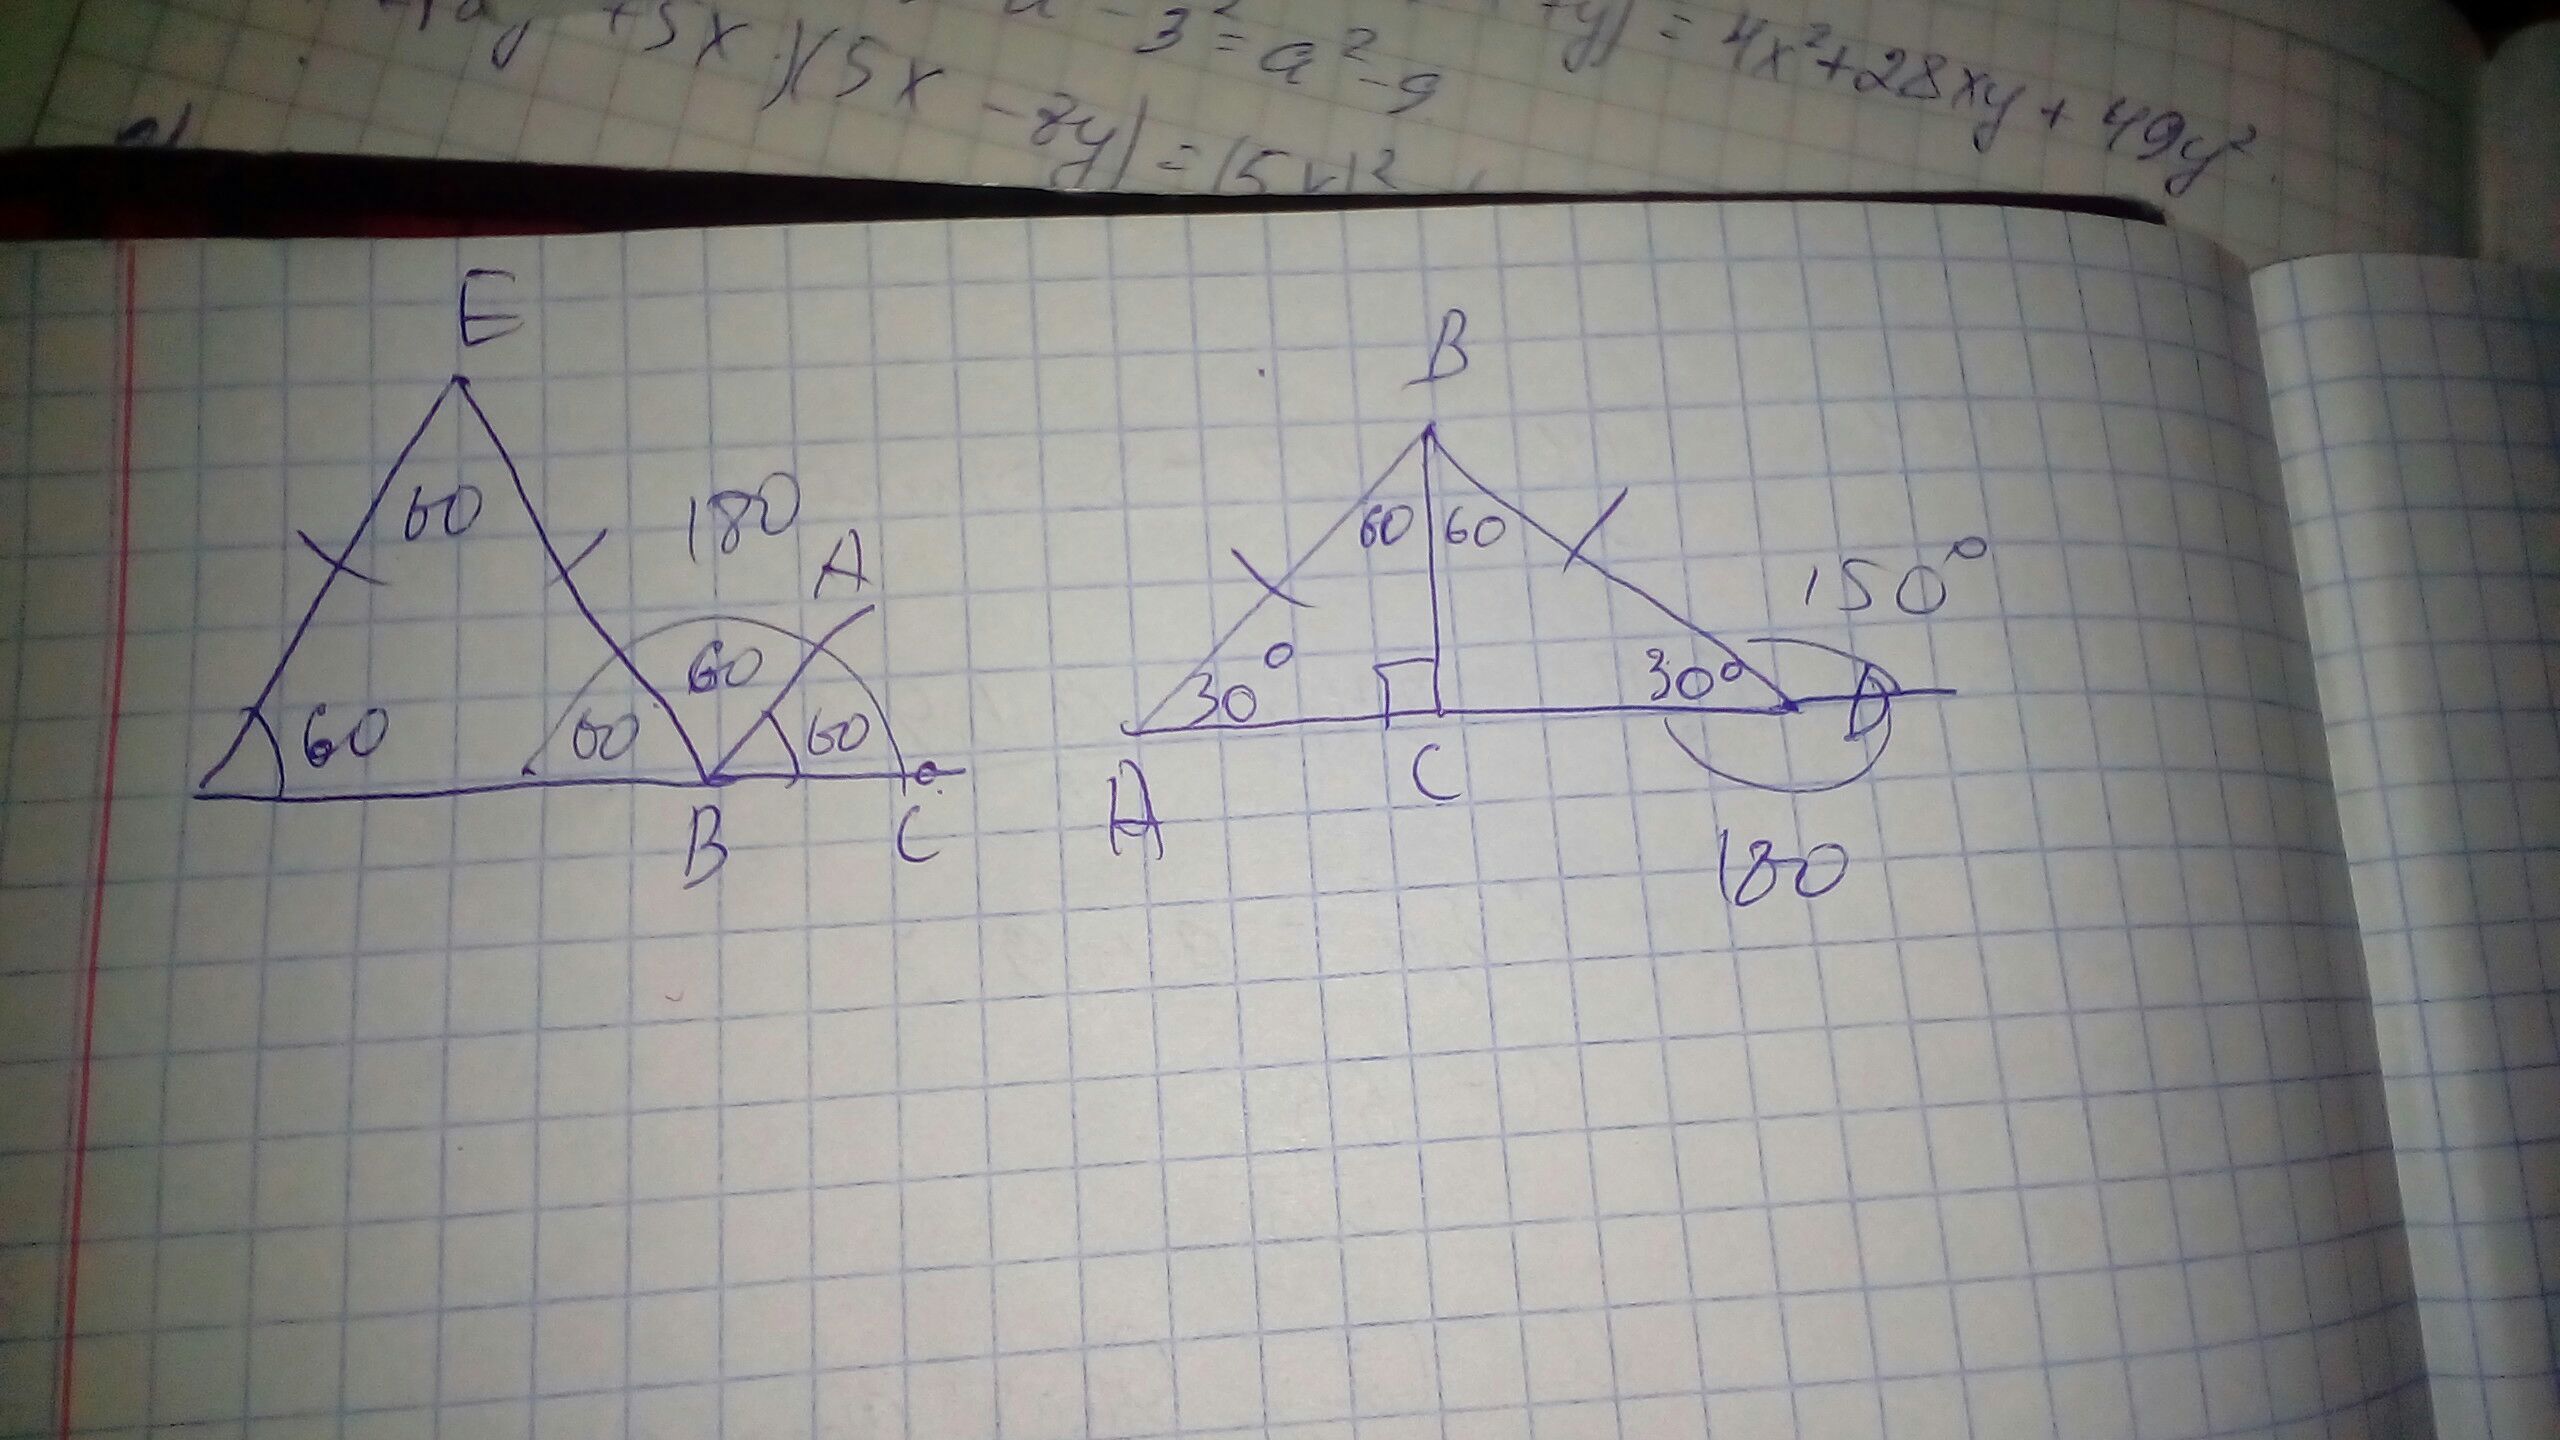 +5x)(5x - 8y) = (5x)²
- 3² = a² - 9
+ y) = 4x² + 28xy + 49y²
E
60
180
A
60
60
60
60
B
C
B
60 60
150°
30°
30°
A
C
D
180